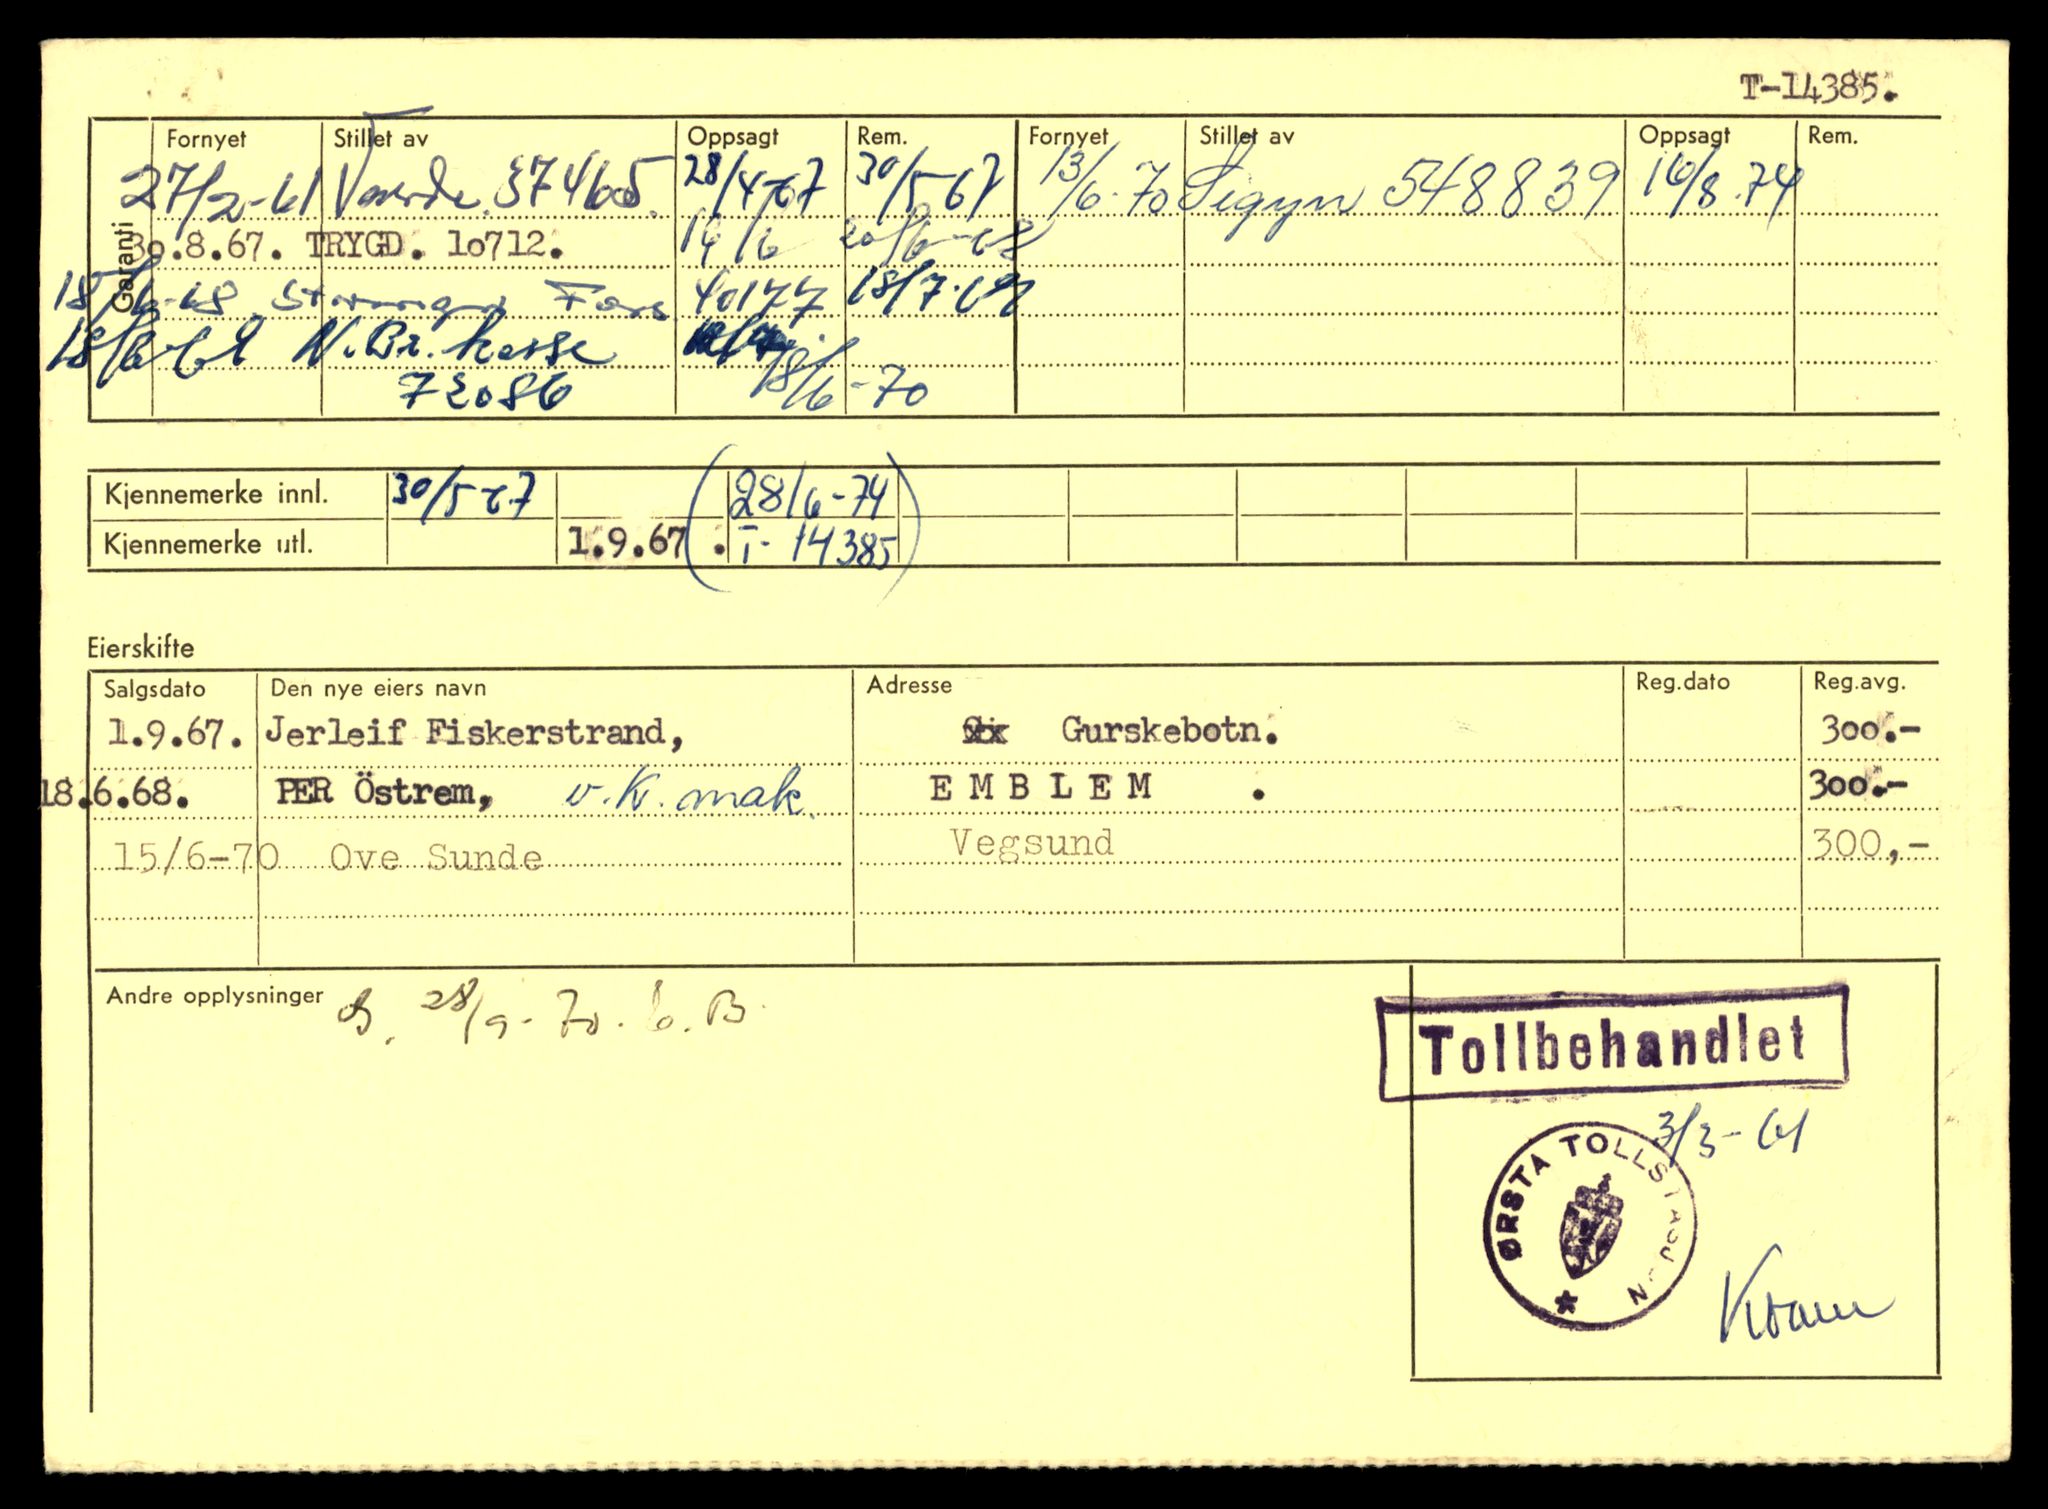 T-14385.
Fornyet Stillet av Oppsagt Rem. Fornyet Stillet av Oppsagt Rem.
27/2-61 Varde. 374605. 28/4-67 30/5-67 13/6-70 Sigyn 548839 16/8.74
30.8.67. TRYGD. 10712. 14/6 20/6-68
15/6-68 Fors 40177 18/7-69
18/6-69 N.Br.kasse
72086 18/6-70
Garanti
Kjennemerke innl. 30/5-67 (28/6-74
Kjennemerke utl. 1.9.67. T-14385)
Eierskifte
Salgsdato Den nye eiers navn Adresse Reg.dato Reg.avg.
1.9.67. Jerleif Fiskerstrand, Gurskebotn. 300.-
18.6.68. PER Östrem, v.kv.mak. EMBLEM . 300.-
15/6-70 Ove Sunde Vegsund 300,-
Andre opplysninger 28/9-70. B.
Tollbehandlet
3/3-61
ØRSTA TOLLSTASJON